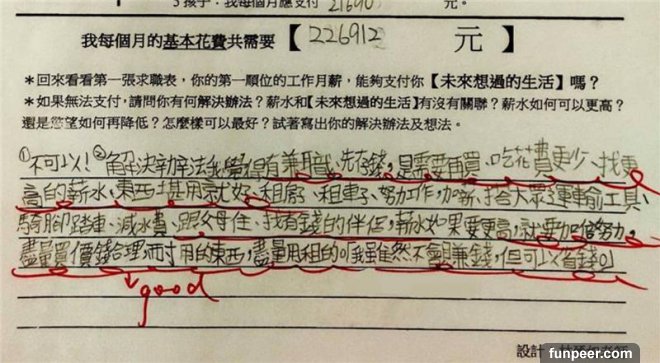 3 孩子：我每個月應支付 21690 元。
我每個月的基本花費共需要【226912 元】
＊回來看看第一張求職表，你的第一順位的工作月薪，能夠支付你【未來想過的生活】嗎？
＊如果無法支付，請問你有何解決辦法？薪水和【未來想過的生活】有沒有關聯？薪水如何可以更高？
還是慾望如何再降低？怎麼樣可以最好？試著寫出你的解決辦法及想法。
①不可以！②解決辦法我覺得有兼職、先存錢，是需要再買、吃花費更少、找更
高的薪水、東西堪用就好、租房子、租車子、努力工作，加薪、搭大眾運輸工具、
騎腳踏車、減水費、跟父母住、找有錢的伴侶，薪水如果要更高，就要加倍努力，
盡量買價錢合理而寸用的東西，盡量用租的，我雖然不會賺錢，但可以省錢
good
設計
funpeer.com